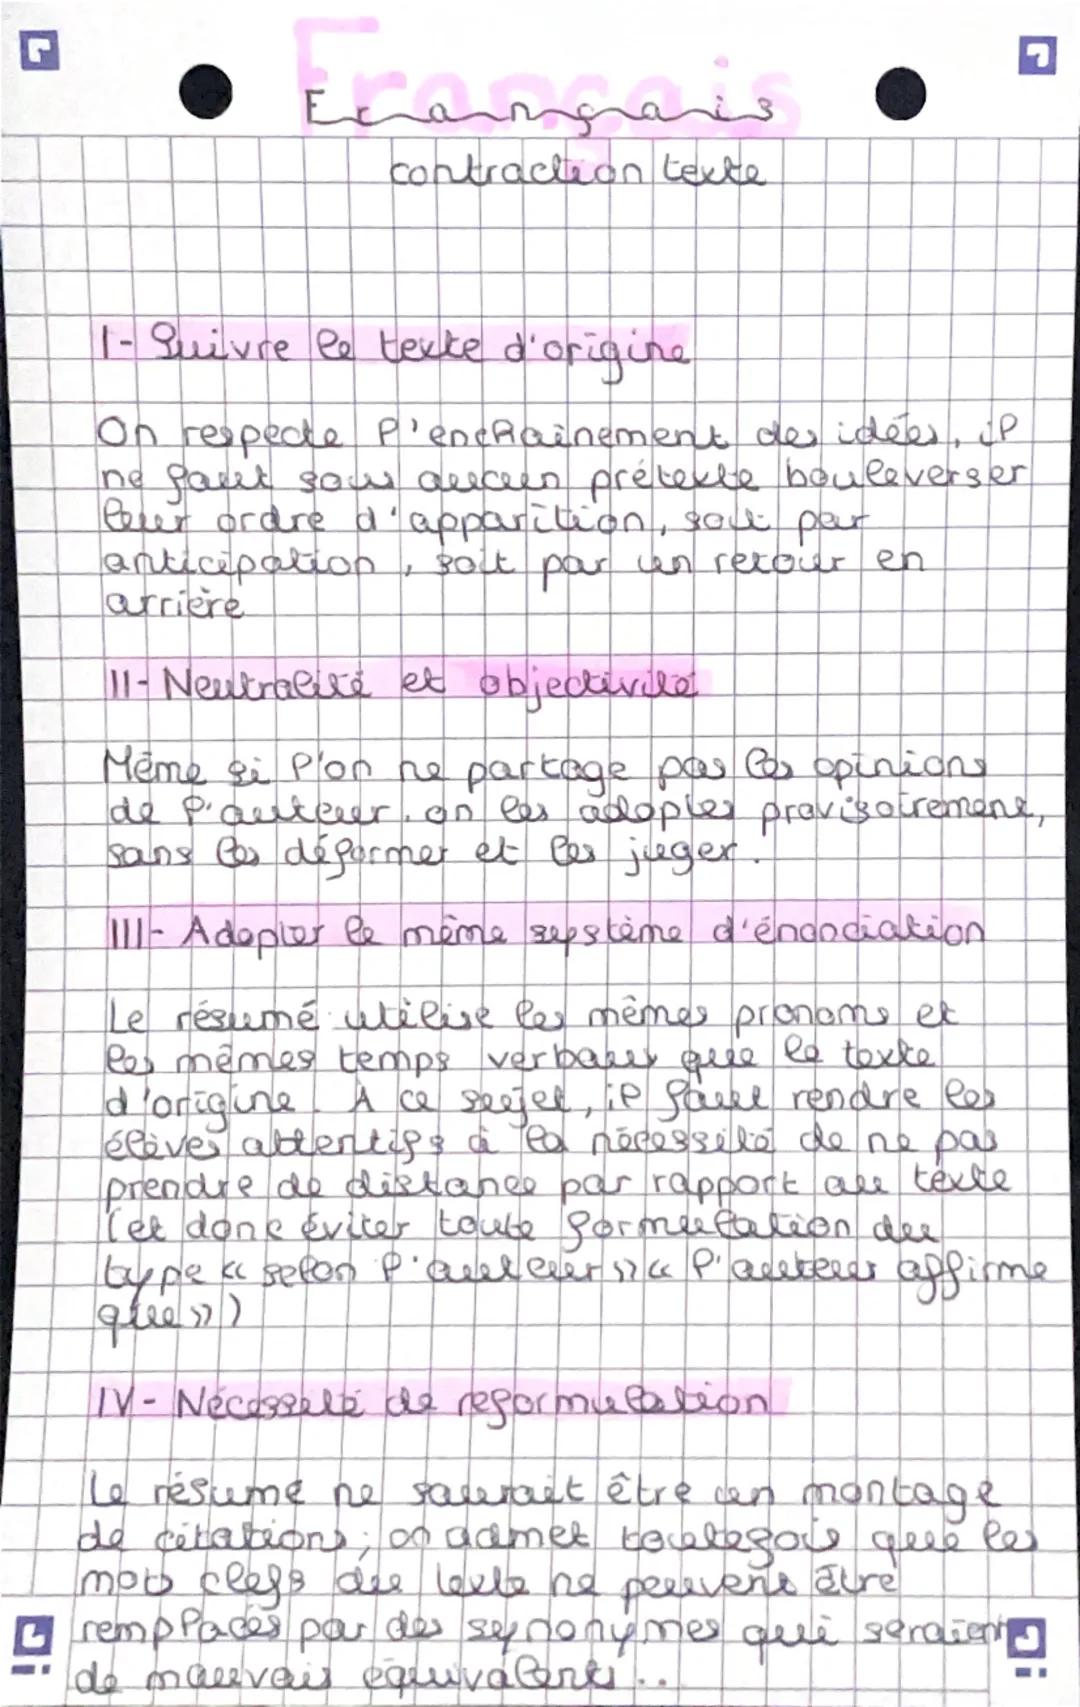 Français
Français
contraction texte
I- Suivre le texte d'origine
On respecte l'enchainement des idées, il
ne faut sous aucun prétexte bouleverser
leur ordre d'apparition, soit par
anticipation, soit par un retour en
arrière
II- Neutralité et objectivité
Même si l'on ne partage pas les opinions
de l'auteur, on les adoptes provisoirement,
sans les déformer et les juger.
III- Adopter le même système d'énonciation
Le résumé utilise les mêmes pronoms et
les mêmes temps verbaux que le texte
d'origine. A ce sujet, il faut rendre les
élèves attentifs à la nécessité de ne pas
prendre de distance par rapport au texte
(et donc éviter toute formulation du
type « selon l'auteur »« l'auteur affirme
que »)
IV- Nécessité de reformulation
Le résumé ne saurait être un montage
de citations; on admet toutefois que les
mots clefs du texte ne peuvent être
remplacés par des synonymes qui seraient
de mauvais équivalents...